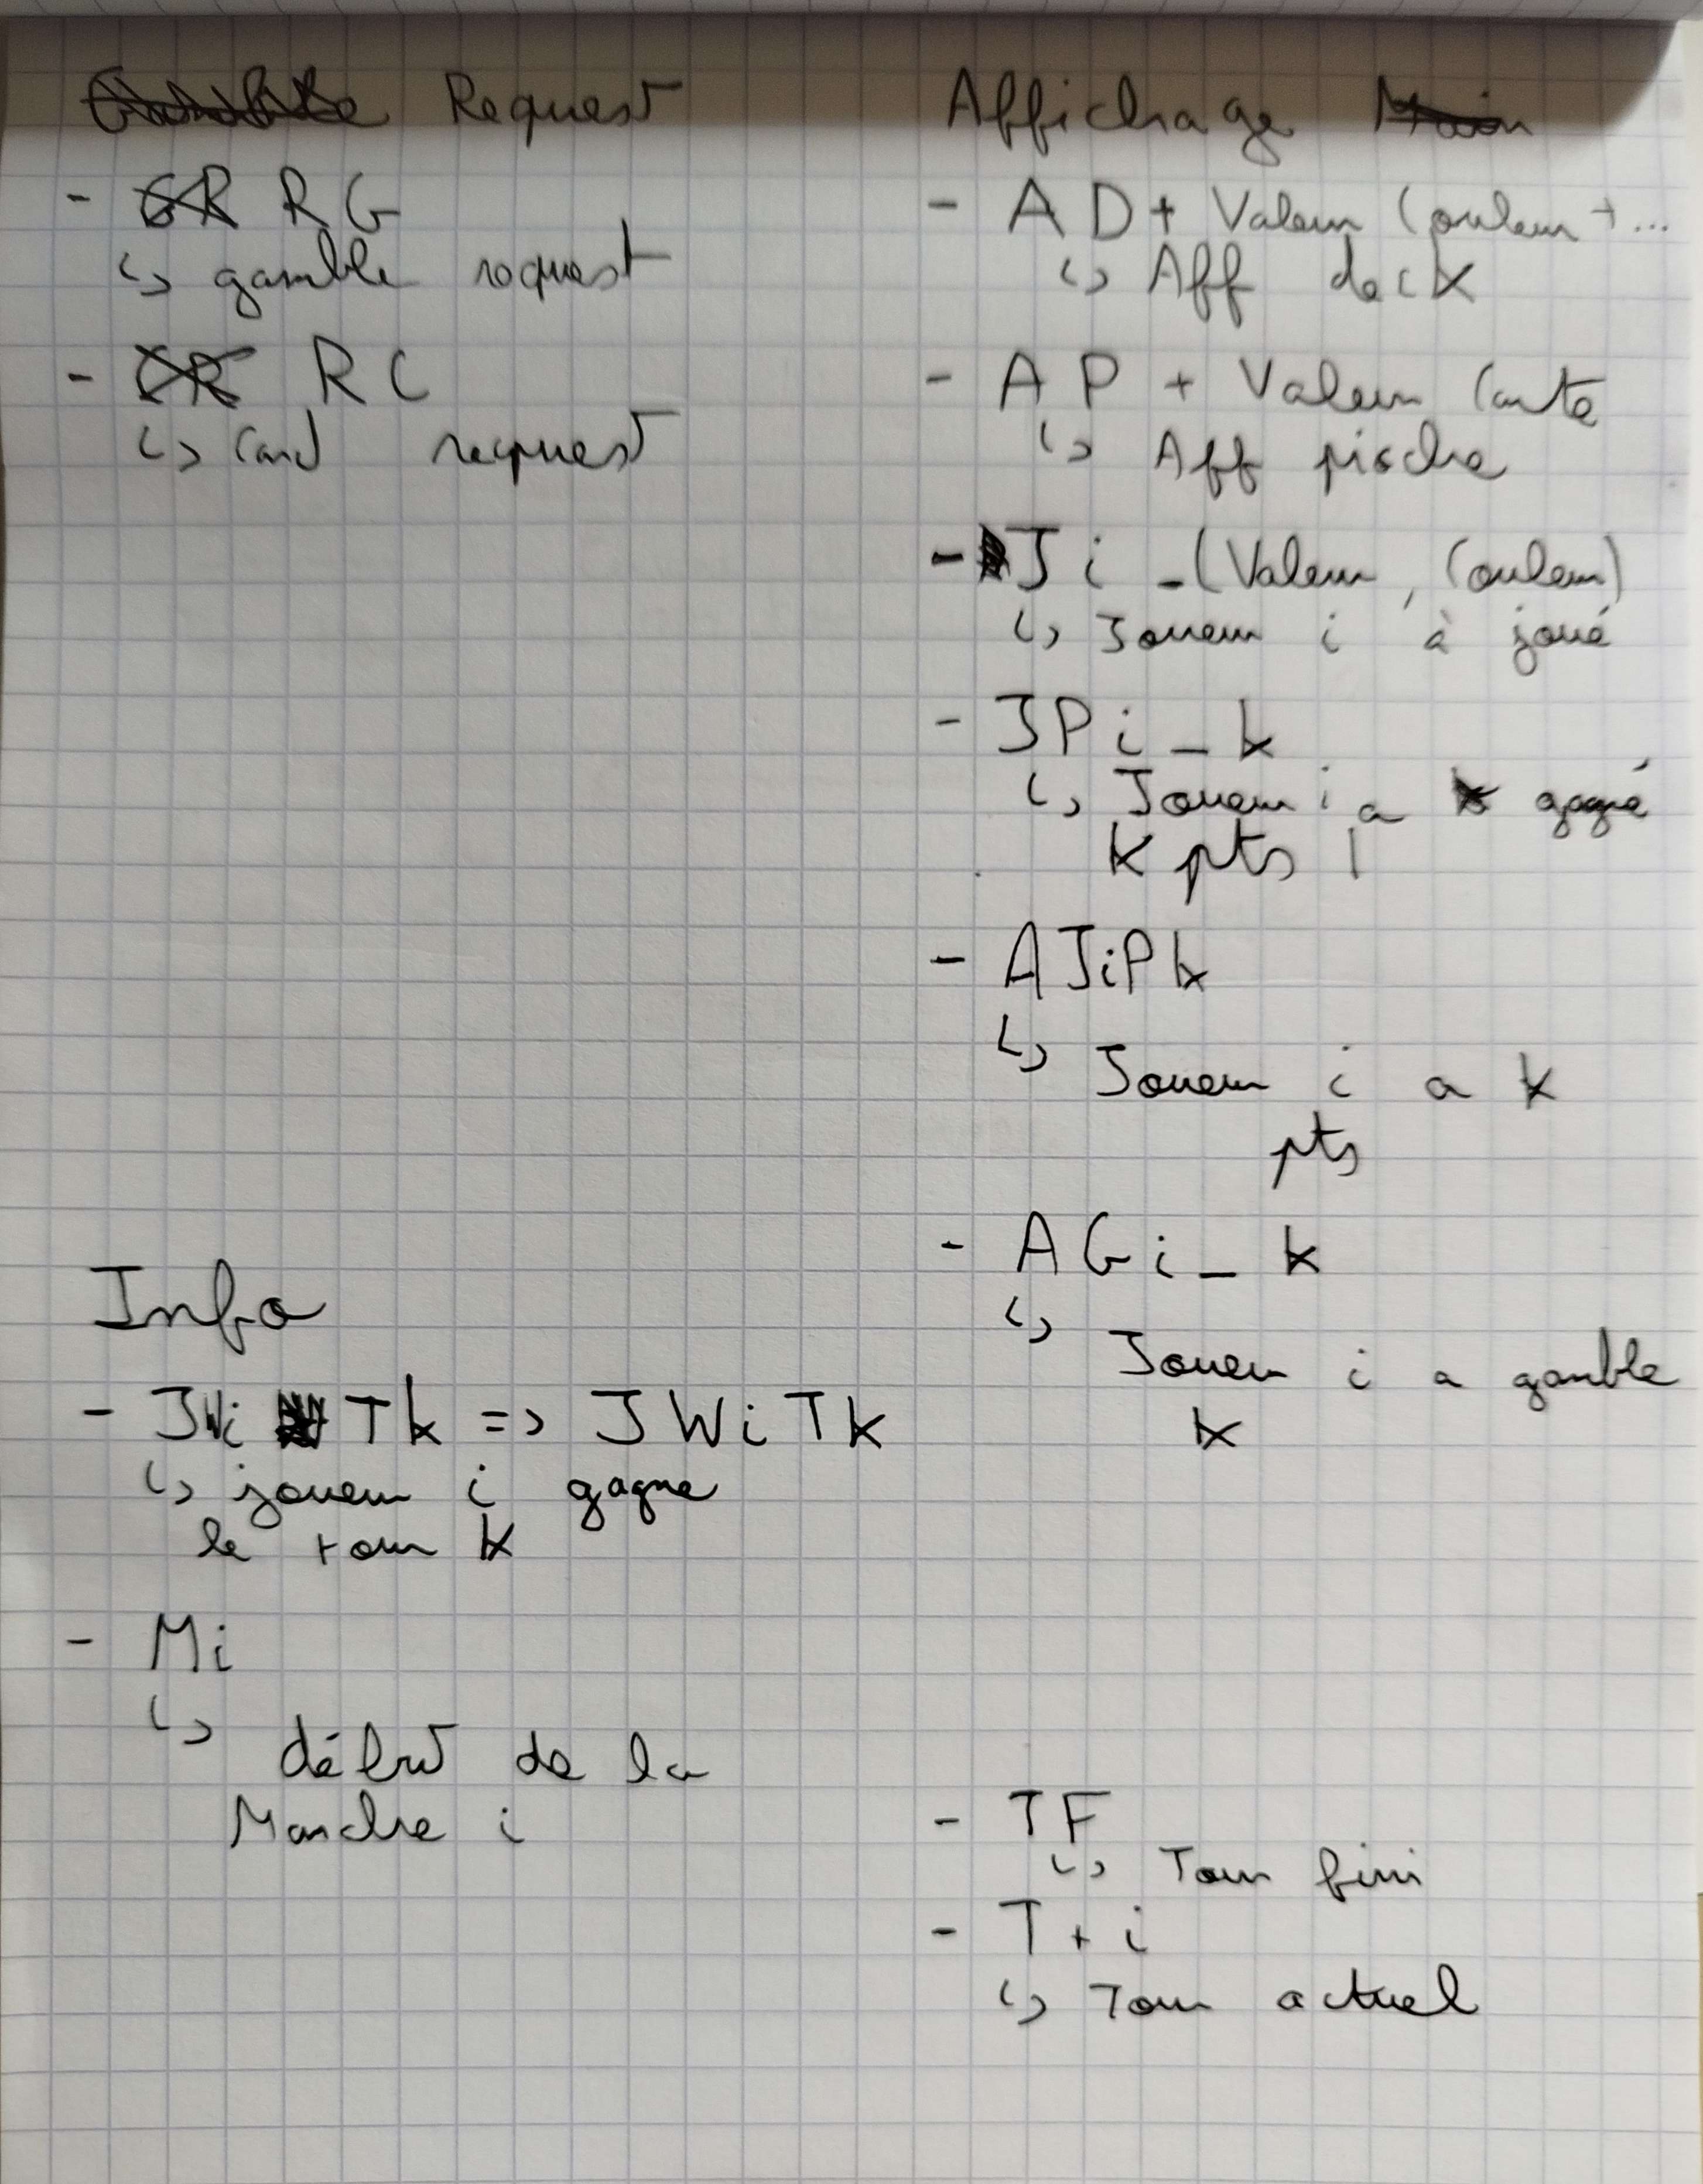 Request
- RG
↳ gamble request
- RC
↳ Card request
Info
- JWi Tk => JWiTk
↳ joueur i gagne
le tour k
- Mi
↳ début de la
Manche i
Affichage
- AD + Valeur Couleur + ...
↳ Aff deck
- AP + Valeur Carte
↳ Aff pioche
- Ji _ (Valeur, Couleur)
↳ Joueur i à joué
- JPi _ k
↳ Joueur i a gagné
k pts !
- AJiPk
↳ Joueur i a k
pts
- AGi _ k
↳ Joueur i a gamble
k
- TF
↳ Tour fini
- T + i
↳ Tour actuel